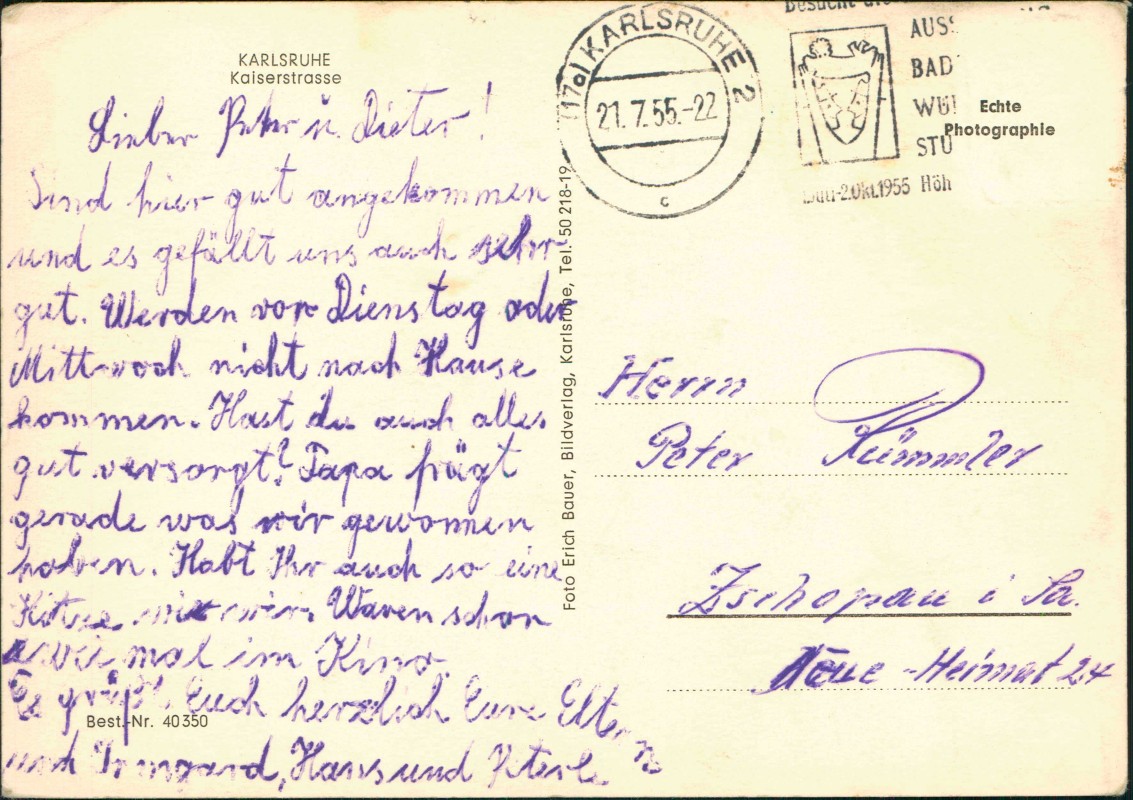 KARLSRUHE
Kaiserstrasse
Lieber Peter u. Dieter!
Sind hier gut angekommen
und es gefällt uns auch sehr
gut. Werden vor Dienstag oder
Mittwoch nicht nach Hause
kommen. Hast du auch alles
gut versorgt? Papa frägt
gerade was wir gewonnen
haben. Habt Ihr auch so eine
Hitze wie wir. Waren schon
zwei mal im Kino.
Es grüßt Euch herzlich Eure Eltern
und Irmgard, Hans und Peterle
Best.-Nr. 40350
Foto Erich Bauer, Bildverlag, Karlsruhe, Tel. 50 218-19
(17a) KARLSRUHE 2
21.7.55.-22
c
Besucht die
AUS
BAD
WÜ
STU
2.Okt.1955 Höh
Echte
Photographie
Herrn
Peter Kümmler
Zschopau i Sa.
Neue-Heimat 24